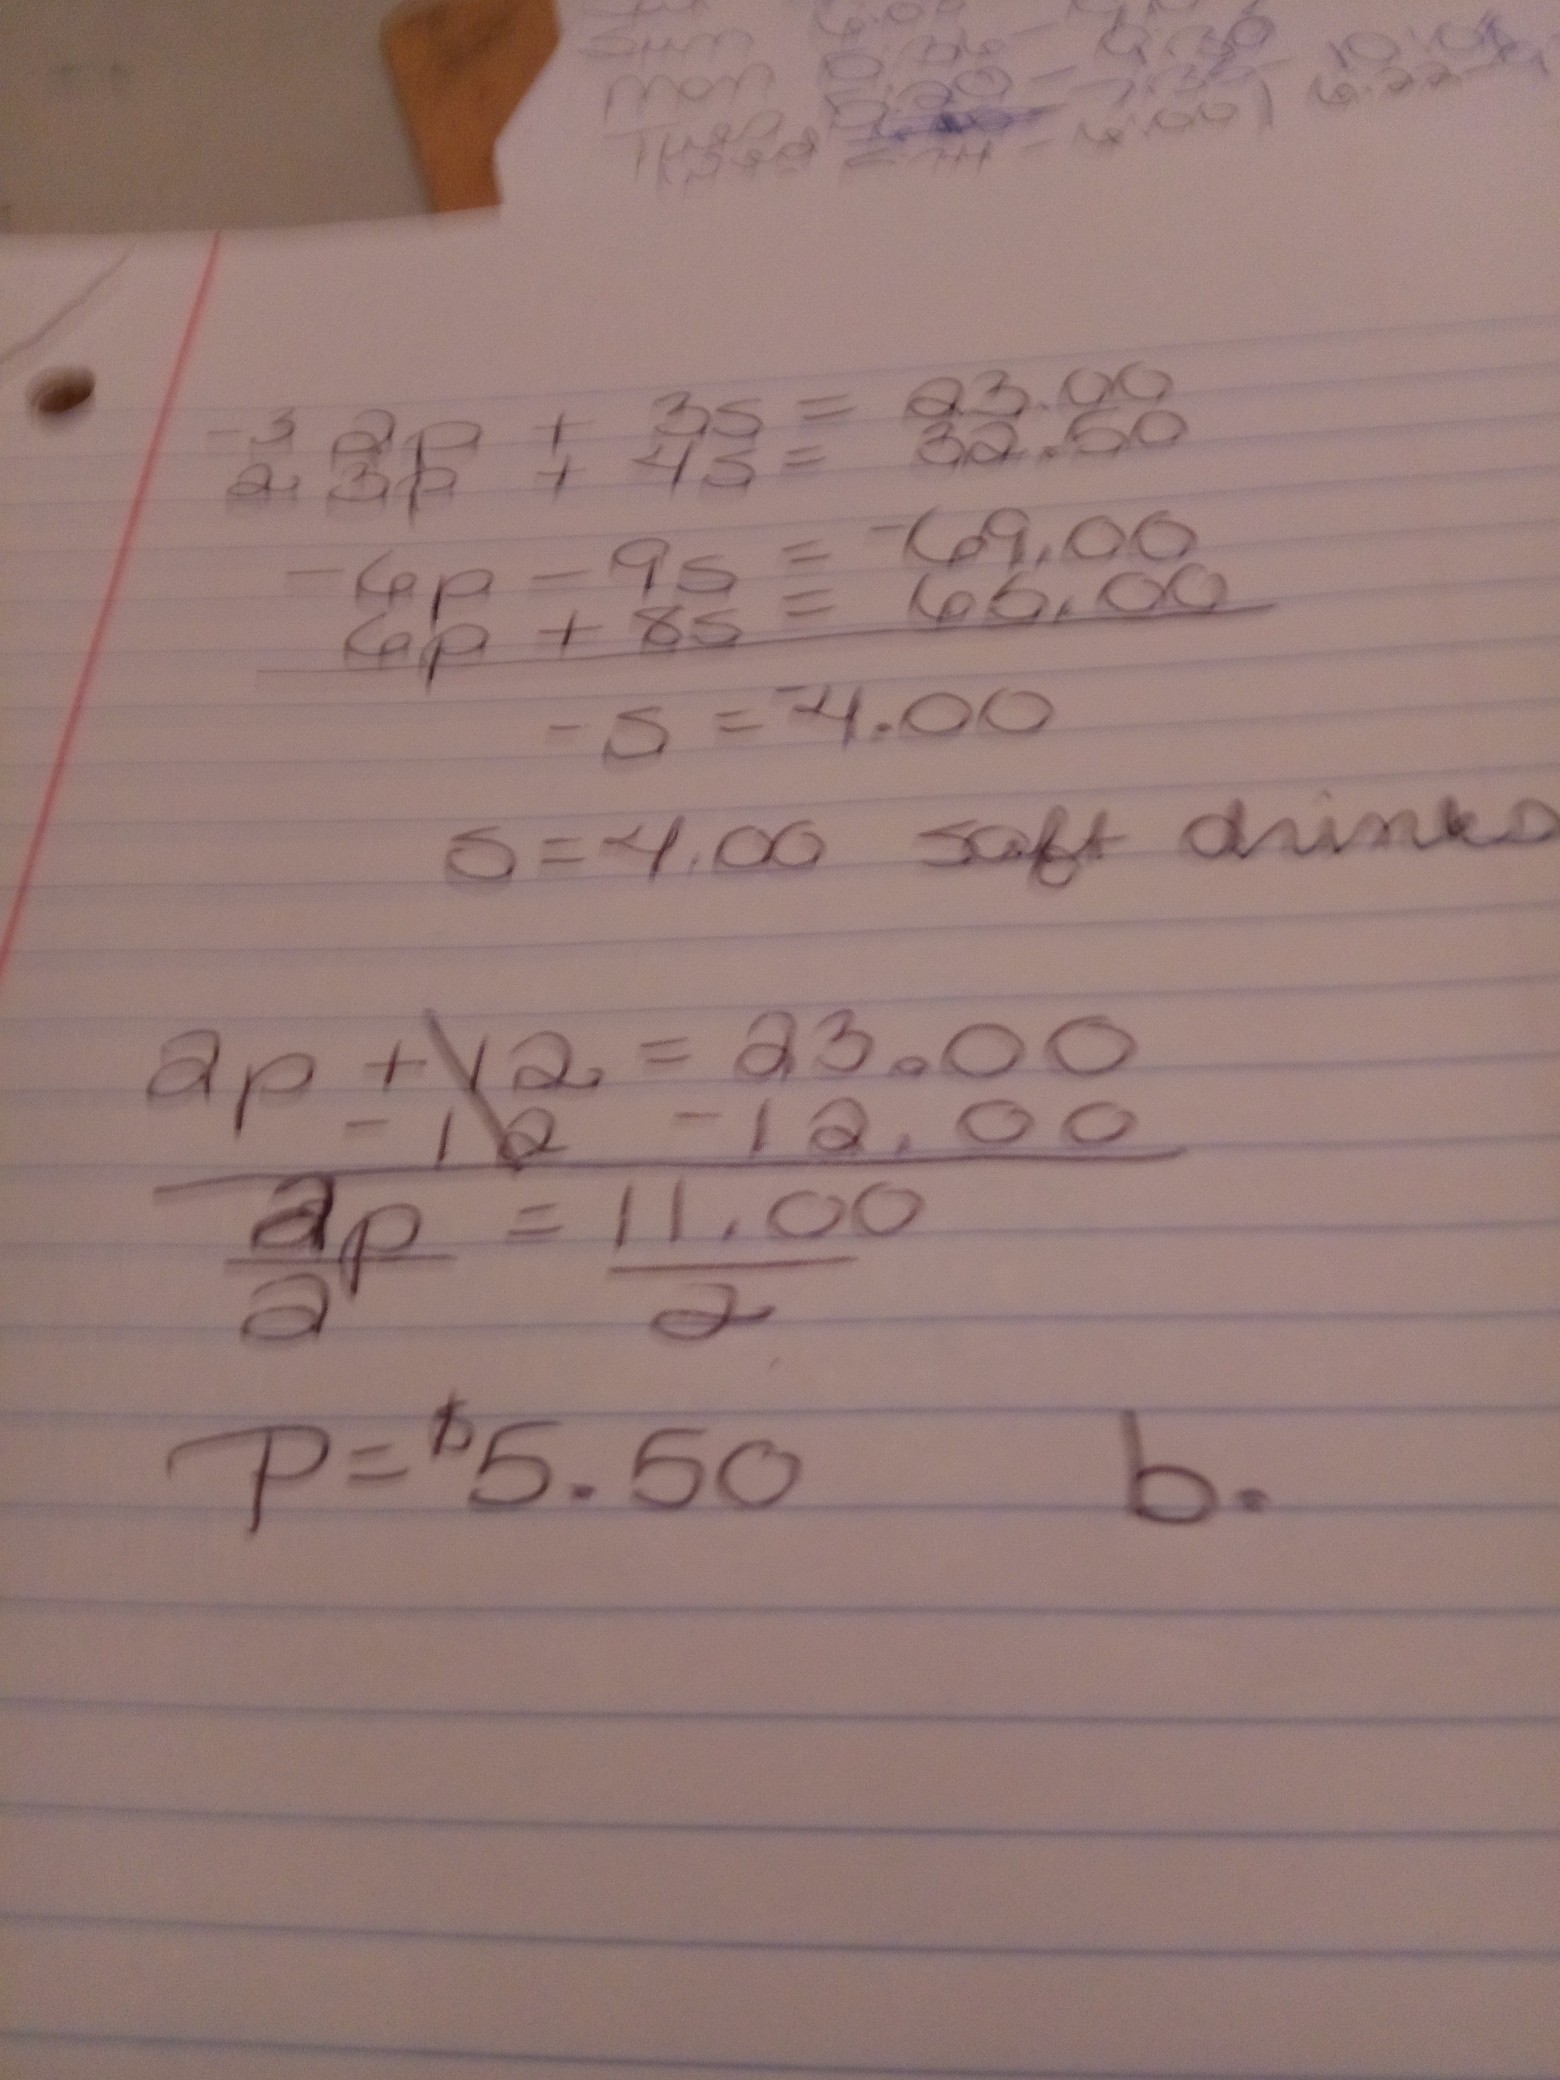 Sun
mon
-3 2p + 3s = 23.00
2. 3p + 4s = 32.50
-6p - 9s = -69.00
6p + 8s = 65.00
-s = -4.00
s = 4.00 soft drinks
2p + 12 = 23.00
-12 -12.00
2p = 11.00
2 2
P = $5.50 b.